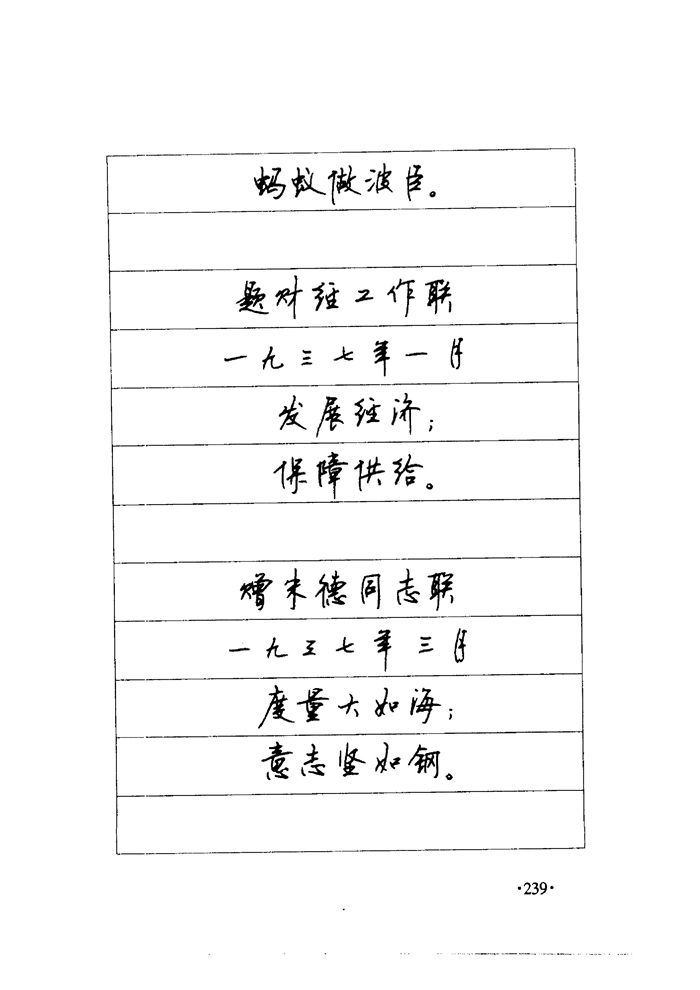 蚂蚁做波臣。
题财经工作联
一九三七年一月
发展经济；
保障供给。
赠朱德同志联
一九三七年三月
度量大如海；
意志坚如钢。
·239·